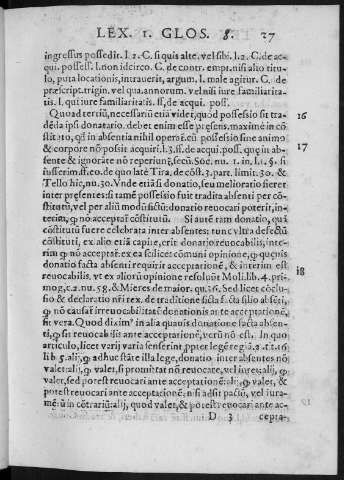 LEX. 1. GLOS. 8. 27
ingressus possedit. l. 2. C. si quis alte. vel sibi. l. 2. C. de ac-
qui. possess. l. non idcirco. C. de contr. empt. nisi alio titu-
lo, puta locationis, intrauerit, argum. l. male agitur. C. de
præscript. trigin. vel qua. annorum. vel nisi iure familiarita
tis. l. qui iure familiaritatis. ff. de acqui. poss.
Quoad tertiũ, necessariũ etiã videt, quòd possessio sit tra- 16
dẽda ipsi donatario. debet enim esse præsens, maximè in cõ
stituto, qđ in absentia nihil operat̃. cũ possessio sine animo
& corpore nõ possit acquiri. l. 3. ff. de acqui. poss. quę in ab- 17
sente & ignorãte nõ reperiunt̃, secũ. Soc. nu. 1. in l. 1. §. si
iusserim. ff. eo. de quo latè Tira. de cõst. 3. part. limit. 30. &
Tello hic, nu. 30. Vnde etiã si donatio, seu melioratio fieret
inter præsentes: si tamẽ possessio fuit tradita absenti per cõ
stitutũ, vel per aliũ modũ fictũ: donatio reuocari poterit, in-
terim, q̃ nõ acceptat̃ cõstitutũ. Si autẽ tam donatio, quã
cõstitutũ fuere celebrata inter absentes: tunc vltra defectũ
cõstituti, ex alio etiã capite, erit donatio reuocabilis, inte-
rim q̃ nõ acceptat̃. ex ea scilicet cõmuni opinione, q̃ quęuis
donatio facta absenti requirit acceptationẽ, & interim est
reuocabilis. vt ex aliorũ opinione resoluũt Moli. lib. 4. pri- 18
mog. c. 2. nu. 58. & Mieres de maior. qu. 26. Sed licet cõclu-
sio & declaratio nr̃i tex. de traditione ficta facta filio absẽti,
q̃ nõ causat̃ irreuocabilitat̃ donationis ante acceptationẽ,
sit vera. Quod diximꝰ in alia quauis donatione facta absen-
ti, q̃ sit reuocabilis ante acceptationẽ, verũ nõ est. In quo
articulo, licet varij variè senserint ꝓpter legẽ regiã. 2. t. 16
lib. 5. alij: q̃ adhuc state illa lege, donatio inter absentes nõ
valet: alij, q̃ valet, si promittat̃ nõ reuocare, vel iuret: alij, q̃
valet, sed potest reuocari ante acceptationẽ: alij, q̃ valet, &
potest reuocari ante acceptationẽ: nisi adsit pactũ, vel iura-
mẽt̃ũ in cõtrariũ: alij, quod valet, & potest reuocari ante ac-
D 3 cepta-